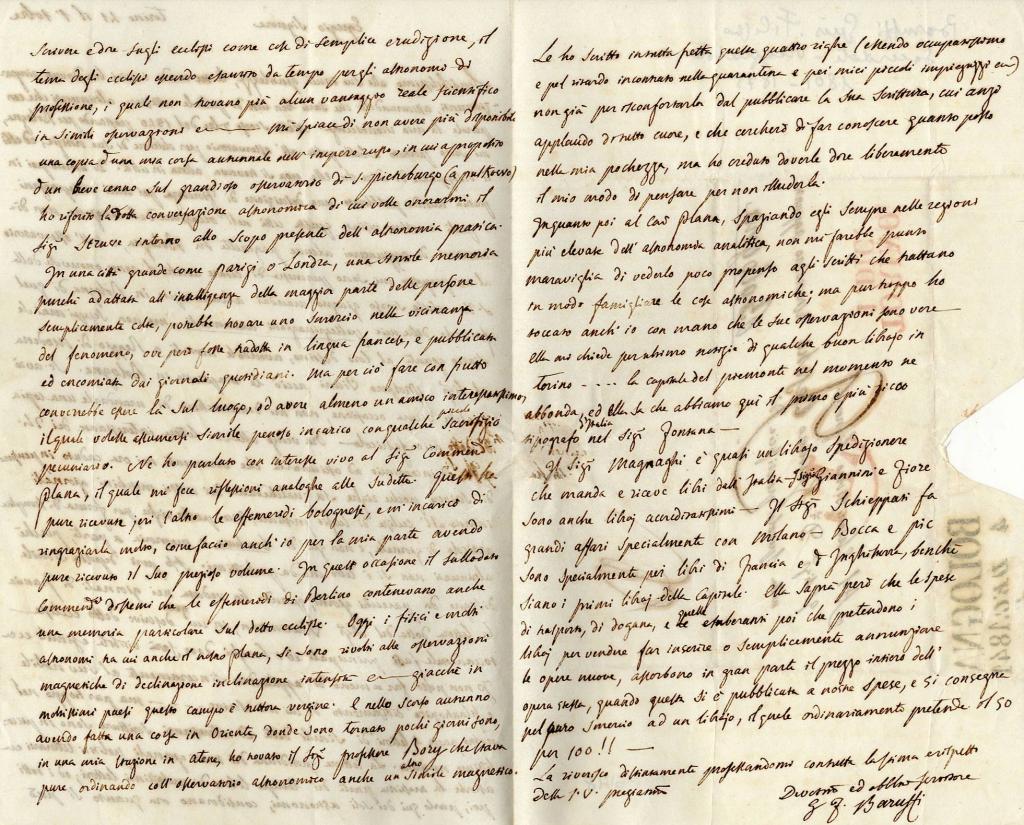 scrivere e dire sugli ecclissi come cose di semplice erudizione, il
tema degli ecclissi essendo esaurito da tempo pergli astronomi di
professione, i quali non trovano più alcun vantaggio reale scientifico
in simili osservazioni e mi spiace di non avere più disponibile
una copia d'una mia corsa autunnale nell'impero russo, in cui a proposito
d'un breve cenno sul grandioso osservatorio di S. pietroburgo (a pulkowo)
ho riferito la dotta conversazione astronomica di cui volle onorarmi il
Sigr Struve intorno allo scopo presente dell'astronomia pratica.
In una città grande come parigi o Londra, una simile memoria
purchè adattata all'intelligenza della maggior parte delle persone
semplicemente colte, potrebbe trovare uno smercio nelle vicinanze
del fenomeno, ove però fosse tradotta in lingua francese, e pubblicata
ed encomiata dai giornali quotidiani. Ma per ciò fare con frutto
converrebbe essere là sul luogo, od avere almeno un amico interessatissimo,
il quale volesse assumersi simile penoso incarico con qualche sacrifizio
pecuniario. Ne ho parlato con interesse vivo al Sigr Commend
plana, il quale mi fece riflessioni analoghe alle sudette.
pure ricevute jeri l'altro le effemeridi bolognesi, e mi incaricò di
ringraziarla molto, come faccio anch'io per la mia parte avendo
pure ricevuto il suo prezioso volume. In quest'occasione il sullodato
Commendre dissemi che le effemeridi di Berlino contenevano anche
una memoria particolare sul detto ecclisse. Oggi i fisici e molti
astronomi tra cui anche il nostro plana, si sono rivolti alle osservazioni
magnetiche di declinazione inclinazione intensità e giacchè in
moltissimi paesi questo campo è tuttora vergine. E nello scorso autunno
avendo fatta una corsa in Oriente, donde sono tornato pochi giorni sono,
in una mia stazione in atene, ho trovato il Sigr professore Bory che stava
pure ordinando coll'osservatorio astronomico anche un altro simile magnetico.
Le ho scritto in tutta fretta queste quattro righe (essendo occupatissimo
e pel ritardo incontrato nella quarantena e pei miei piccoli impiegucci)
non già per isconfortarla dal pubblicare la sua scrittura, cui anzi
applaudo di tutto cuore, e che cercherò di far conoscere quanto posso
nella mia pochezza, ma ho creduto doverle dire liberamente
il mio modo di pensare per non illuderla.
Inquanto poi al Cav plana, spaziando egli sempre nelle regioni
più elevate dell'astronomia analitica, non mi farebbe punto
maraviglia di vederlo poco propenso agli scritti che trattano
in modo famigliare le cose astronomiche; ma pur troppo ho
toccato anch'io con mano che le sue osservazioni sono vere
Ella mi chiede per ultimo notizie di qualche buon librajo in
torino - - - - la capitale del piemonte nel momento ne
abbonda, ed Ella sa che abbiamo qui il primo e più ricco
tipografo d'Italia nel Sigr Fontana
Il Sigr Magnaghi è quasi un librajo spedizionere
che manda e riceve libri dall'Italia - I Sigri Giannini e Fiore
sono anche libraj accreditatissimi - Il Sigr Schieppati fa
grandi affari specialmente con Milano - Bocca e pic
sono specialmente pei libri di Francia e d'Inghilterra, benchè
siano i primi libraj della Capitale. Ella saprà però che le spese
di trasporto, di dogana, e quelle esuberanti poi che pretendono i
libraj per vendere far inserire o semplicemente annunziare
le opere nuove, assorbono in gran parte il prezzo intiero dell'
opera stessa, quando questa si è pubblicata a nostre spese, e si consegna
pel puro smercio ad un librajo, il quale ordinariamente pretende il 50
per 100!!
La riverisco distintamente protestandomi con tutta la stima e rispetto
della S.V. pregiatma
Devotmo ed obblmo servitore
G F. Baruffi
4
DIC. 184
BOLOGNA